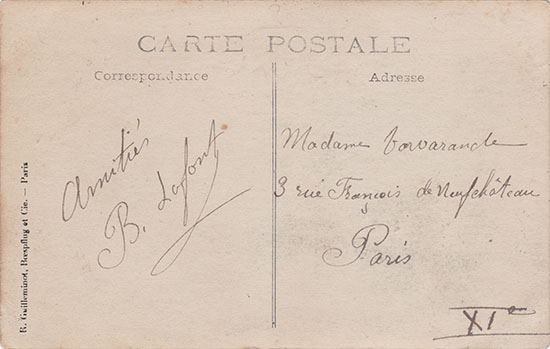 CARTE POSTALE
Correspondance
Adresse
Amitiés
B. Lafont
Madame Vorvarande
3 rue François de Neufchâteau
Paris
XIe
R. Guilleminot, Bœspflug et Cie. — Paris